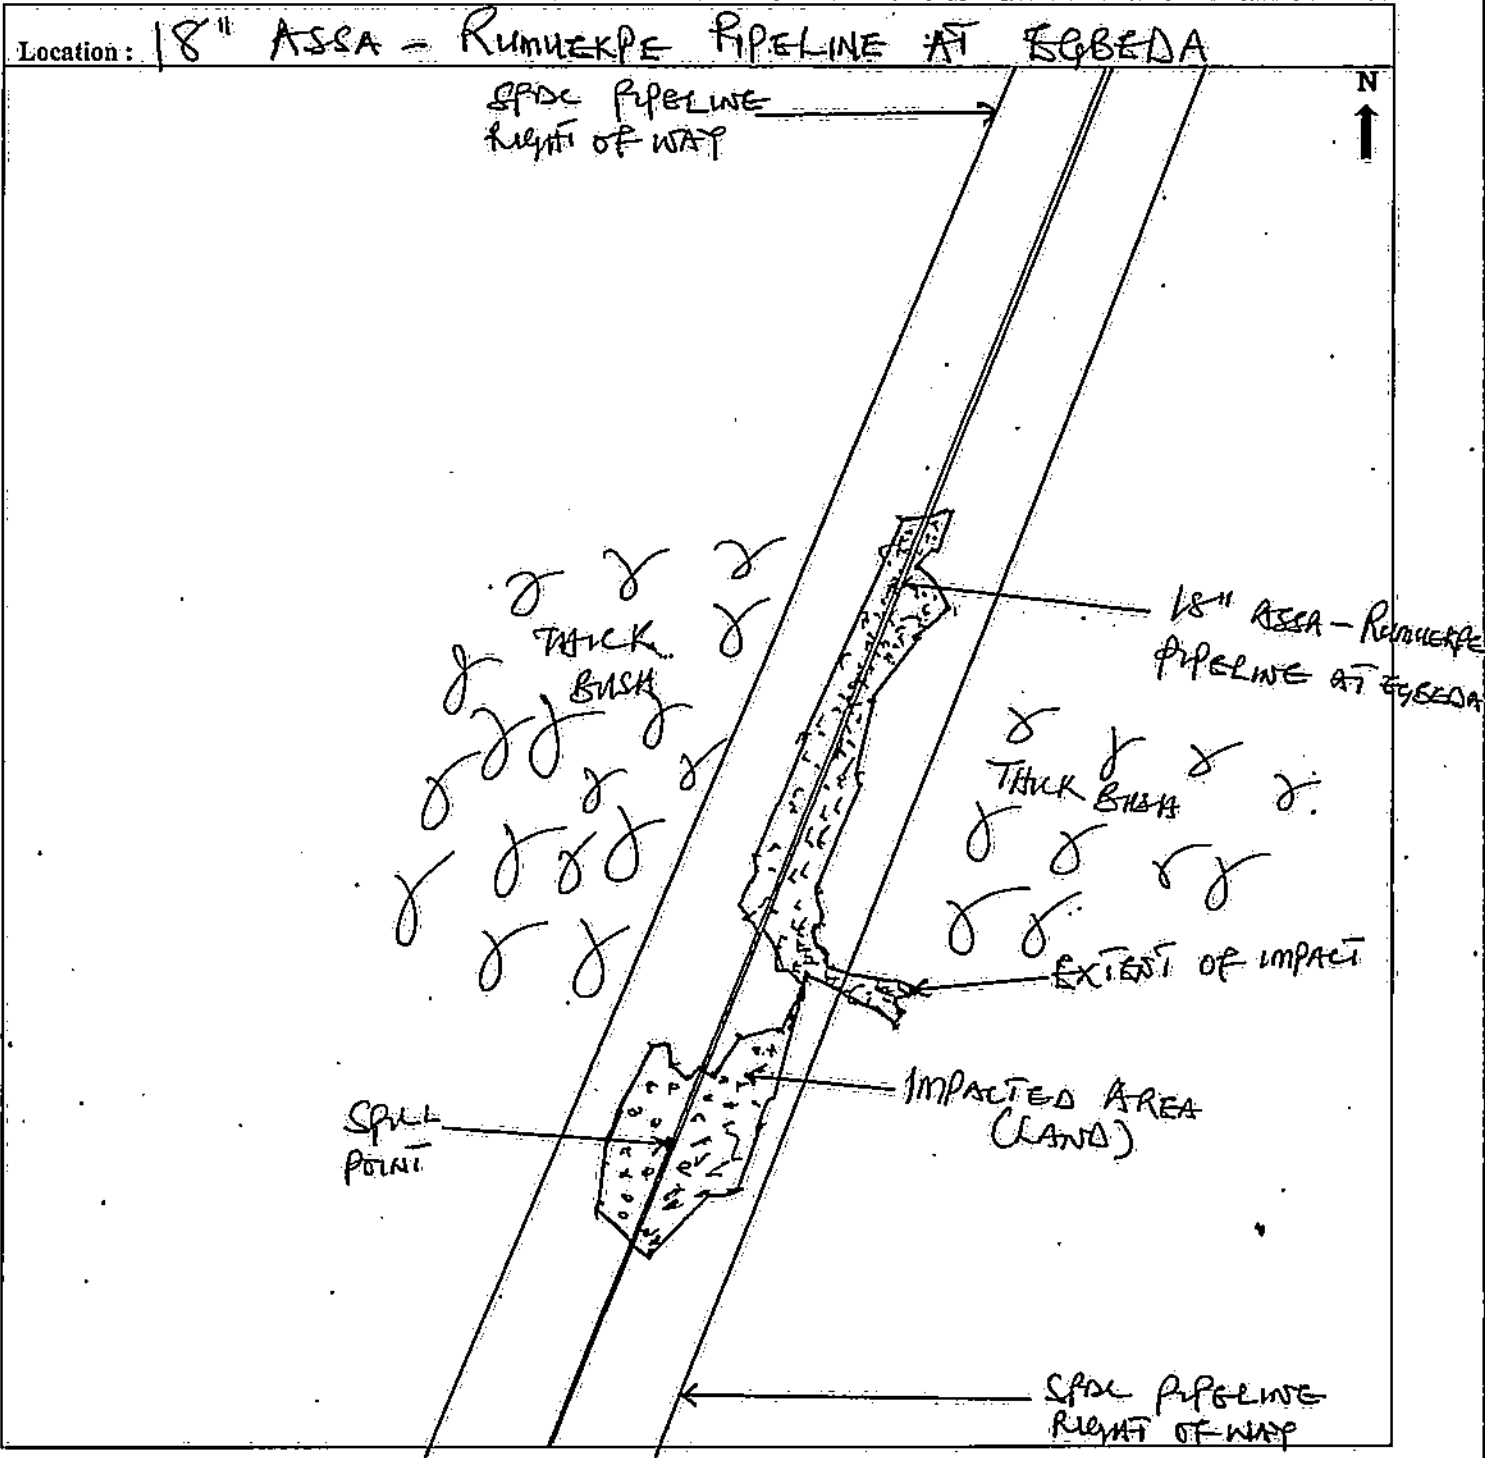 Location: 18" ASSA - RUMUEKPE PIPELINE AT EGBEDA
N
SPDC PIPELINE
RIGHT OF WAY
18" ASSA - RUMUEKPE
PIPELINE AT EGBEDA
THICK
BUSH
THICK BUSH
EXTENT OF IMPACT
IMPACTED AREA
(LAND)
SPILL
POINT
SPDC PIPELINE
RIGHT OF WAY